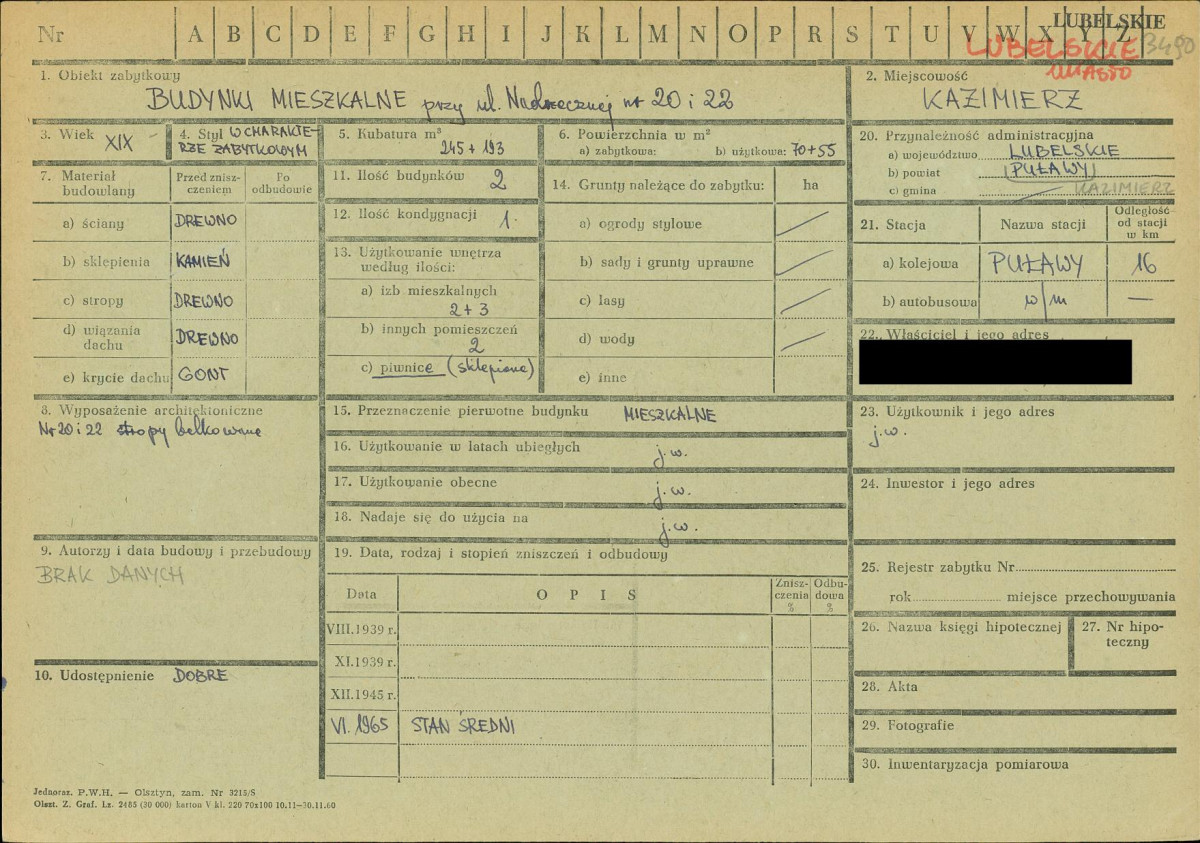 Nr A B C D E F G H I J K L M N O P R S T U V W X Y Z
LUBELSKIE
LUBELSKIE 3490
MIASTO
1. Obiekt zabytkowy
BUDYNKI MIESZKALNE przy ul. Nadrzecznej nr 20 i 22
2. Miejscowość
KAZIMIERZ
3. Wiek XIX
4. Styl W CHARAKTE-
RZE ZABYTKOWYM
5. Kubatura m³
245 + 193
6. Powierzchnia w m²
a) zabytkowa: b) użytkowa: 70+55
20. Przynależność administracyjna
a) województwo LUBELSKIE
b) powiat (PUŁAWY)
c) gmina KAZIMIERZ
7. Materiał budowlany
Przed znisz-
czeniem
Po
odbudowie
a) ściany DREWNO
b) sklepienia KAMIEŃ
c) stropy DREWNO
d) wiązania
dachu DREWNO
e) krycie dachu GONT
11. Ilość budynków 2
12. Ilość kondygnacji 1.
13. Użytkowanie wnętrza
według ilości:
a) izb mieszkalnych
2 + 3
b) innych pomieszczeń
2
c) piwnice (sklepione)
14. Grunty należące do zabytku: ha
a) ogrody stylowe
b) sady i grunty uprawne
c) lasy
d) wody
e) inne
21. Stacja Nazwa stacji
Odległość
od stacji
w km
a) kolejowa PUŁAWY 16
b) autobusowa w/m —
22. Właściciel i jego adres
8. Wyposażenie architektoniczne
Nr 20 i 22 stropy belkowane
15. Przeznaczenie pierwotne budynku MIESZKALNE
16. Użytkowanie w latach ubiegłych j.w.
17. Użytkowanie obecne j.w.
18. Nadaje się do użycia na j.w.
23. Użytkownik i jego adres
j.w.
24. Inwestor i jego adres
9. Autorzy i data budowy i przebudowy
BRAK DANYCH
19. Data, rodzaj i stopień zniszczeń i odbudowy
Data OPIS
Znisz-
czenia
%
Odbu-
dowa
%
VIII.1939 r.
XI.1939 r.
XII.1945 r.
VI. 1965 STAN ŚREDNI
25. Rejestr zabytku Nr
rok miejsce przechowywania
26. Nazwa księgi hipotecznej
27. Nr hipo-
teczny
10. Udostępnienie DOBRE
28. Akta
29. Fotografie
30. Inwentaryzacja pomiarowa
Jednoraz. P.W.H. — Olsztyn, zam. Nr 3215/S
Olszt. Z. Graf. Lz. 2485 (30 000) karton V kl. 220 70x100 10.11—30.11.60